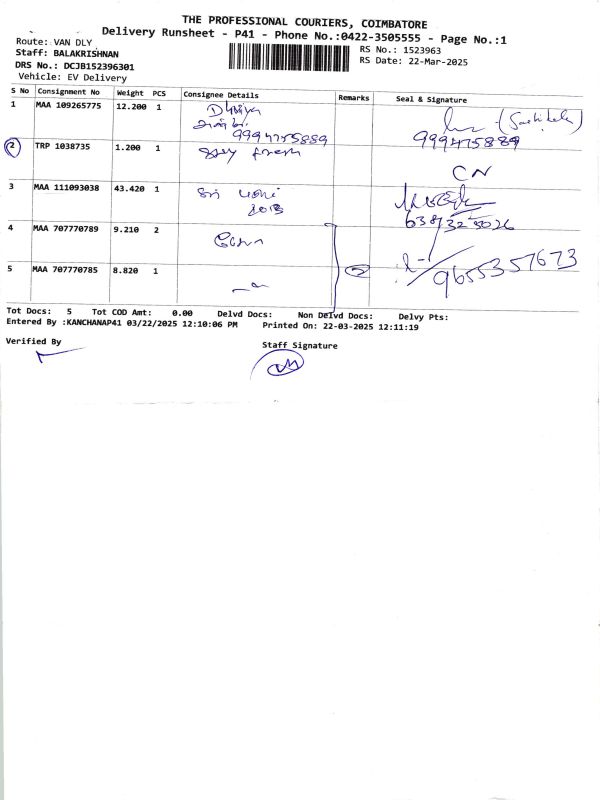 THE PROFESSIONAL COURIERS, COIMBATORE
Delivery Runsheet - P41 - Phone No.:0422-3505555 - Page No.:1
Route: VAN DLY
Staff: BALAKRISHNAN
DRS No.: DCJB152396301
Vehicle: EV Delivery
RS No.: 1523963
RS Date: 22-Mar-2025
S No Consignment No Weight PCS Consignee Details Remarks Seal & Signature
1 MAA 109265775 12.200 1
9994775889
2 TRP 1038735 1.200 1
CN
3 MAA 111093038 43.420 1
4 MAA 707770789 9.210 2
5 MAA 707770785 8.820 1 2 9655357673
Tot Docs: 5 Tot COD Amt: 0.00 Delvd Docs: Non Delvd Docs: Delvy Pts:
Entered By :KANCHANAP41 03/22/2025 12:10:06 PM Printed On: 22-03-2025 12:11:19
Verified By
Staff Signature